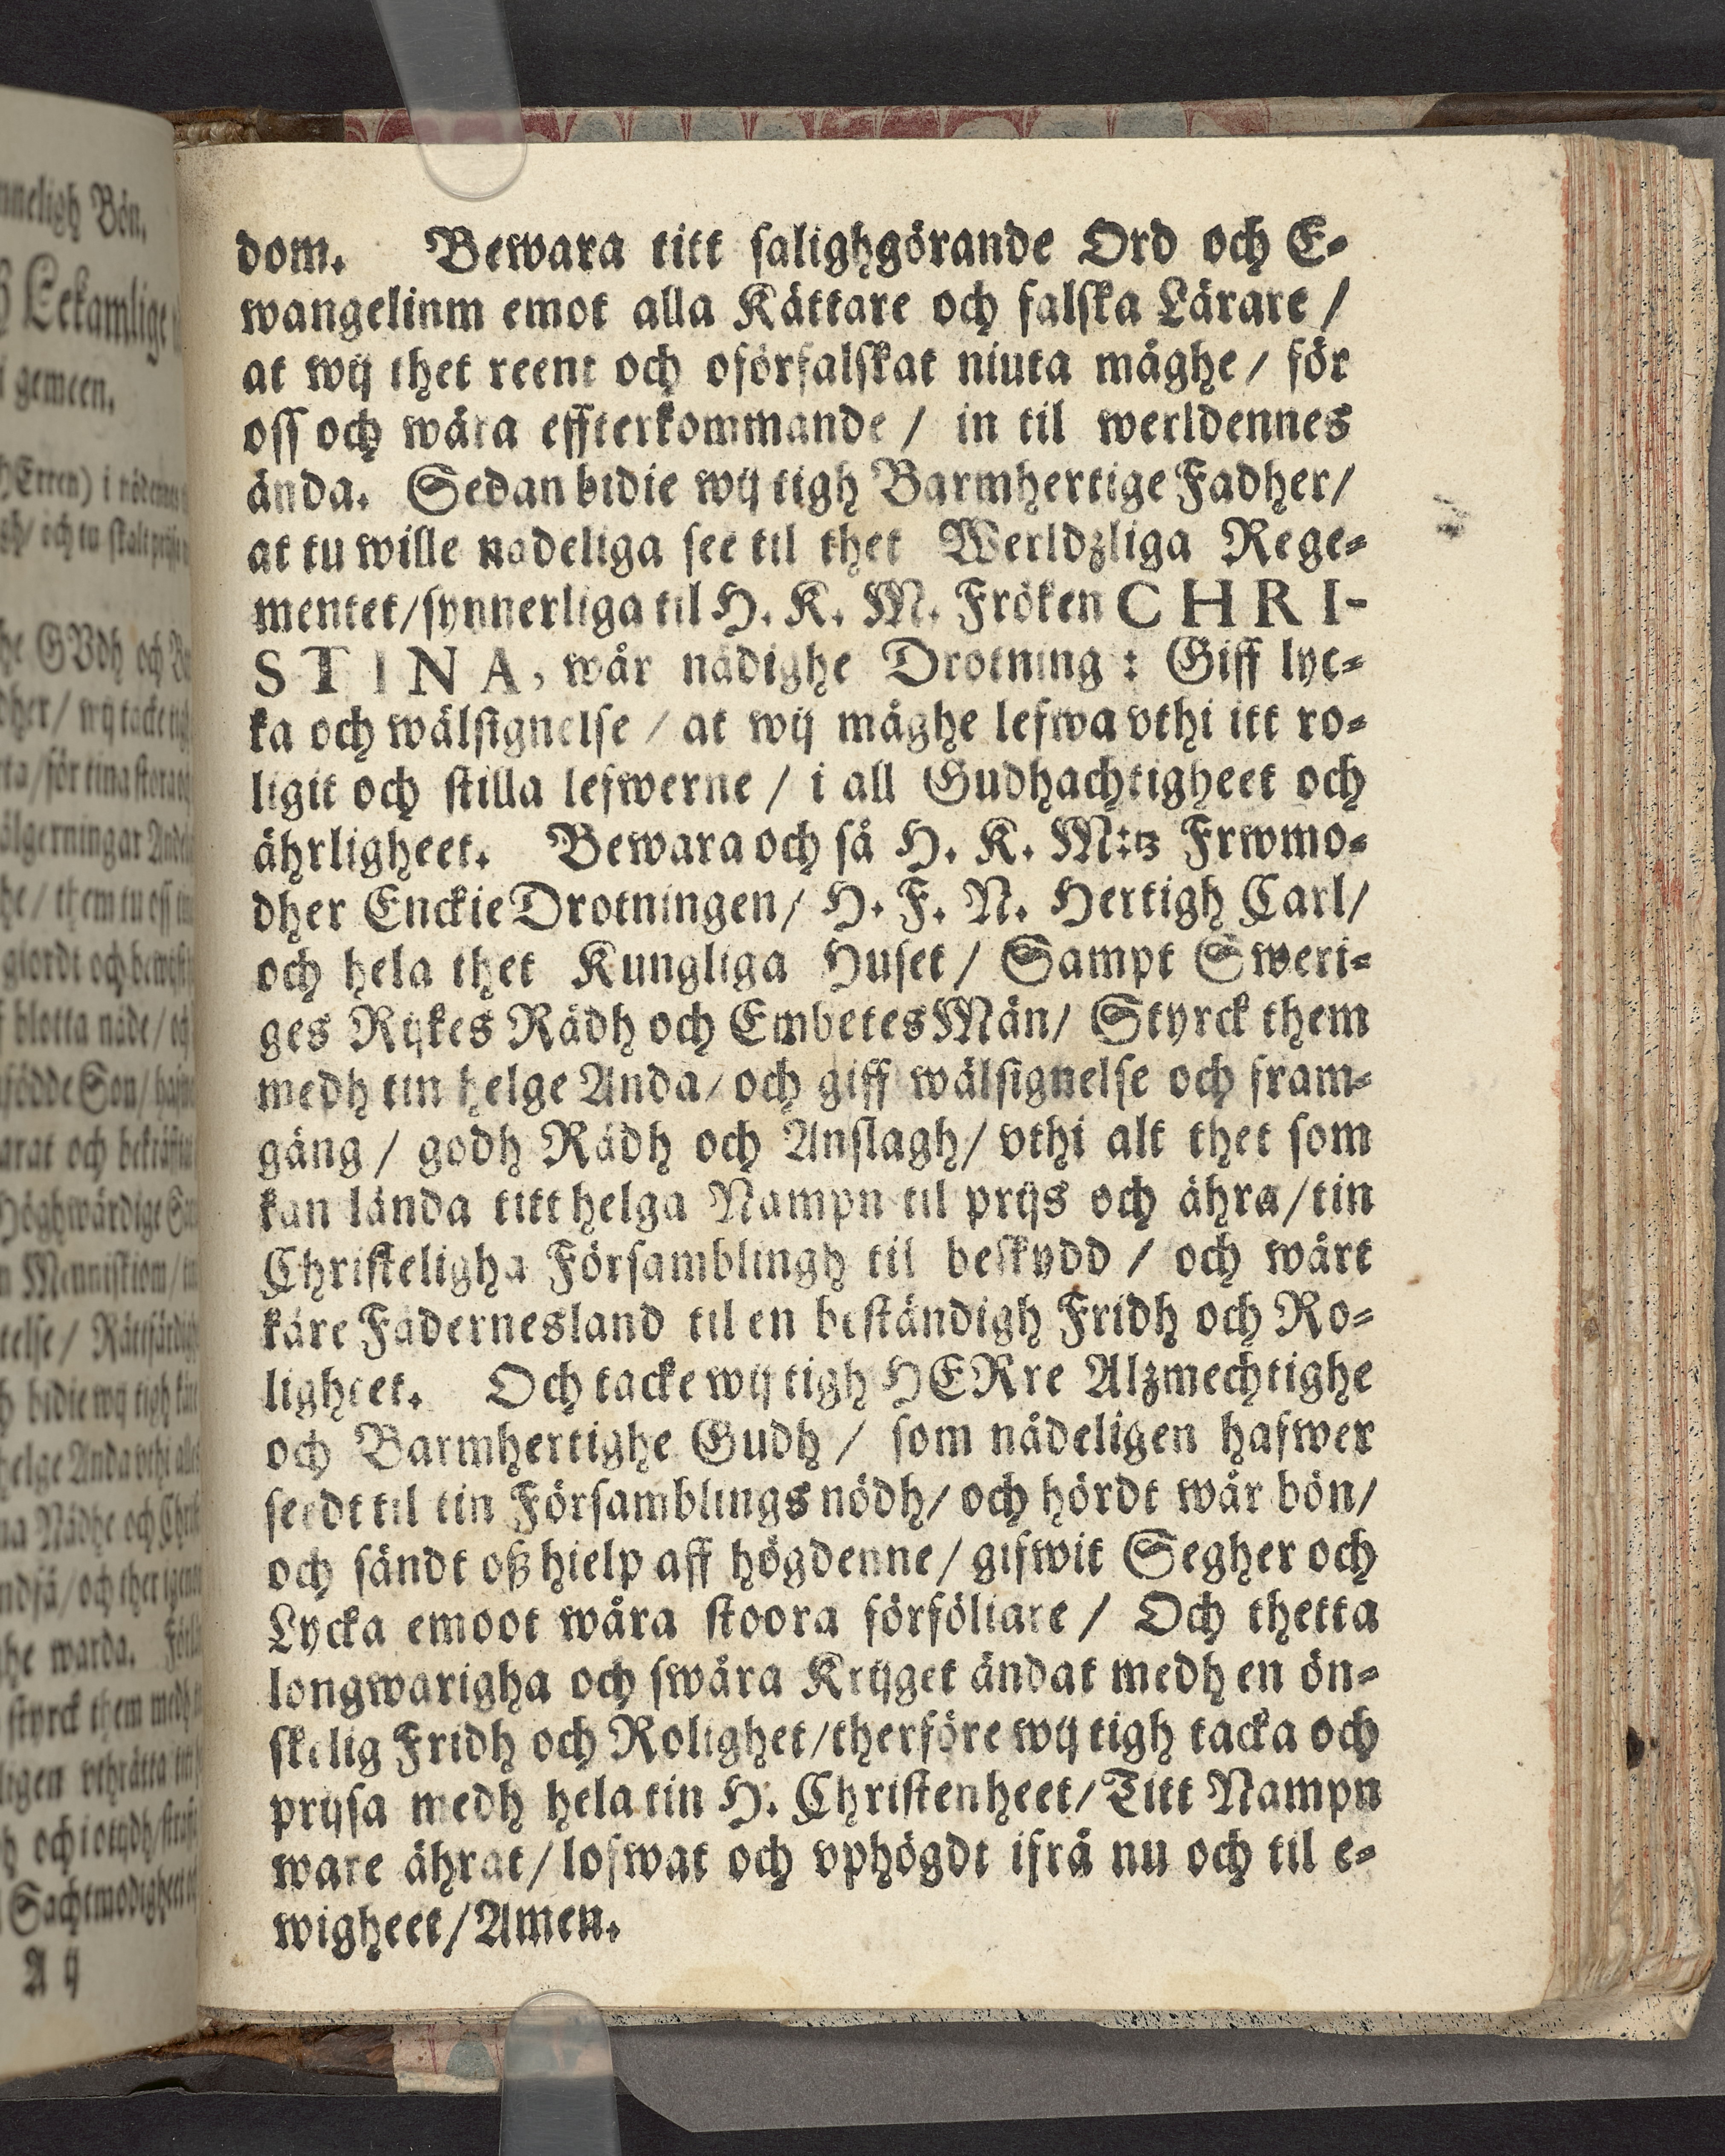 dom. Bewara titt salighgörande Ord och E-
wangelinm emot alla Kättare och falska Lärare /
at wij thet reent och oförfalskat niuta måghe / för
oss och wåra effterkommande / in til werldennes
ända. Sedan bidie wij tigh Barmhertige Fadher /
at tu wille nadeliga see til thet Werldzliga Rege-
mentet / synnerliga til H. K. M. Fröken CHRI-
STINA, wår nådighe Drotning : Giff lyc-
ka och wälsignelse / at wij måghe lefwa vthi itt ro-
ligit och stilla lefwerne / i all Gudhachtigheet och
ährligheet. Bewara och så H. K. M:tz Frwmo-
dher Enckie Drotningen / H. F. N. Hertigh Carl /
och hela thet Kungliga Huset / Sampt Sweri-
ges Rijkes Rådh och Embetes Män / Styrck them
medh tin helge Anda / och giff wälsignelse och fram-
gång / godh Rådh och Anslagh / vthi alt thet som
kan lända titt helga Nampn til prijs och ähra / tin
Christeligha Församblingh til beskydd / och wårt
käre Fädernesland til en beständigh Fridh och Ro-
ligheet. Och tacke wij tigh HERre Alzmechtighe
och Barmhertighe Gudh / som nådeligen hafwer
seedt til tin Församblings nödh / och hördt wår bön /
och sändt oß hielp aff högdenne / gifwit Segher och
Lycka emoot wåra stoora förföliare / Och thetta
longwarigha och swåra Krijget ändat medh en ön-
skelig Fridh och Rolighet / therföre wij tigh tacka och
prijsa medh hela tin H. Christenheet / Titt Nampn
ware ährat / lofwat och vphögdt ifrå nu och til e-
wigheet / Amen.
A ij